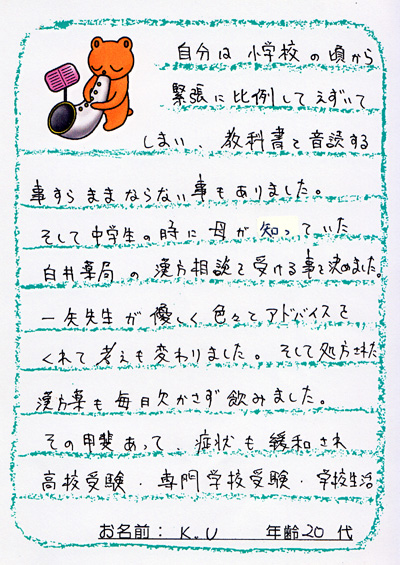 自分は小学校の頃から
緊張に比例してえずいて
しまい、教科書を音読する
事すらままならない事もありました。
そして中学生の時に母が知っていた
白井薬局の漢方相談を受ける事を決めました。
一矢先生が優しく色々とアドバイスを
くれて考えも変わりました。そして処方された
漢方薬も毎日欠かさず飲みました。
その甲斐あって、症状も緩和され
高校受験・専門学校受験・学校生活
お名前： K.U 年齢20代